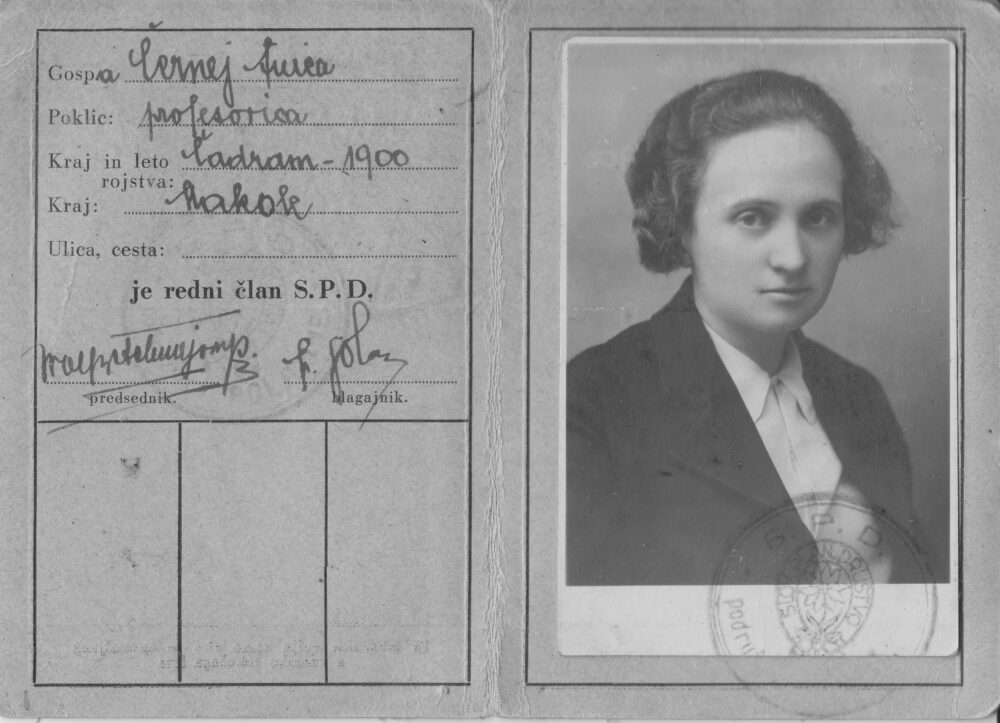 Gospa Černej Anica
Poklic: profesorica
Kraj in leto Čadram - 1900
rojstva:
Kraj: Makole
Ulica, cesta:
je redni član S.P.D.
predsednik. blagajnik.
S. P. D.
podru